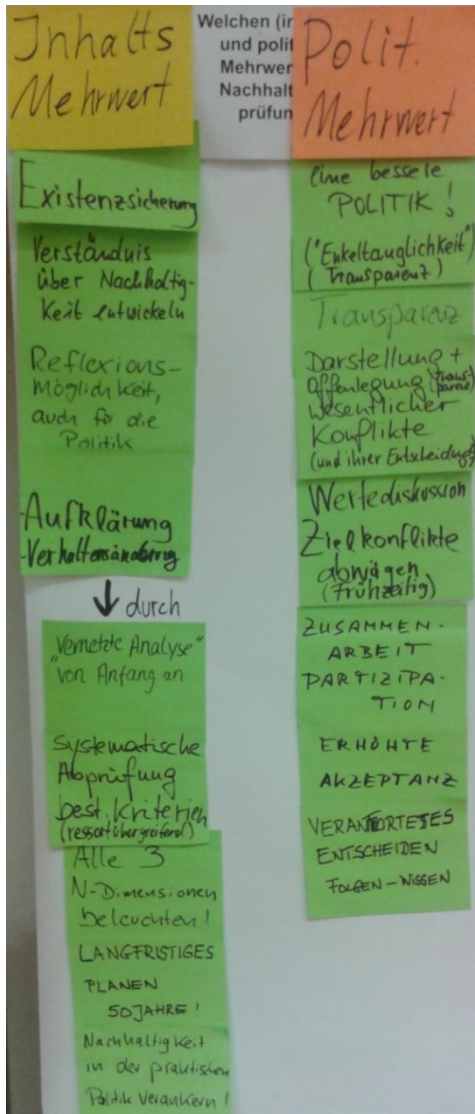 Inhalts
Mehrwert
Welchen
und
Mehrwer
Nachhalt
prüfun
Polit.
Mehrwert
Existenzsicherung
Verständnis
über Nachhaltig-
keit entwickeln
Reflexions-
möglichkeit,
auch für die
Politik
-Aufklärung
-Verhaltensänderung
↓ durch
"Vernetzte Analyse"
von Anfang an
Systematische
Abprüfung
best. Kriterien
(ressortübergreifend)
Alle 3
N-Dimensionen
beleuchten!
LANGFRISTIGES
PLANEN
50 JAHRE!
Nachhaltigkeit
in der praktischen
Politik verankern!
Eine bessere
POLITIK!
("Enkeltauglichkeit")
(Transparenz)
Transparenz
Darstellung +
Offenlegung (Trans-
parenz)
wesentlicher
Konflikte
(und ihrer Entscheidung)
Wertediskussion
Zielkonflikte
abwägen
(Frühzeitig)
ZUSAMMEN-
ARBEIT
PARTIZIPA-
TION
ERHÖHTE
AKZEPTANZ
ENTSCHEIDEN
FOLGEN-WISSEN